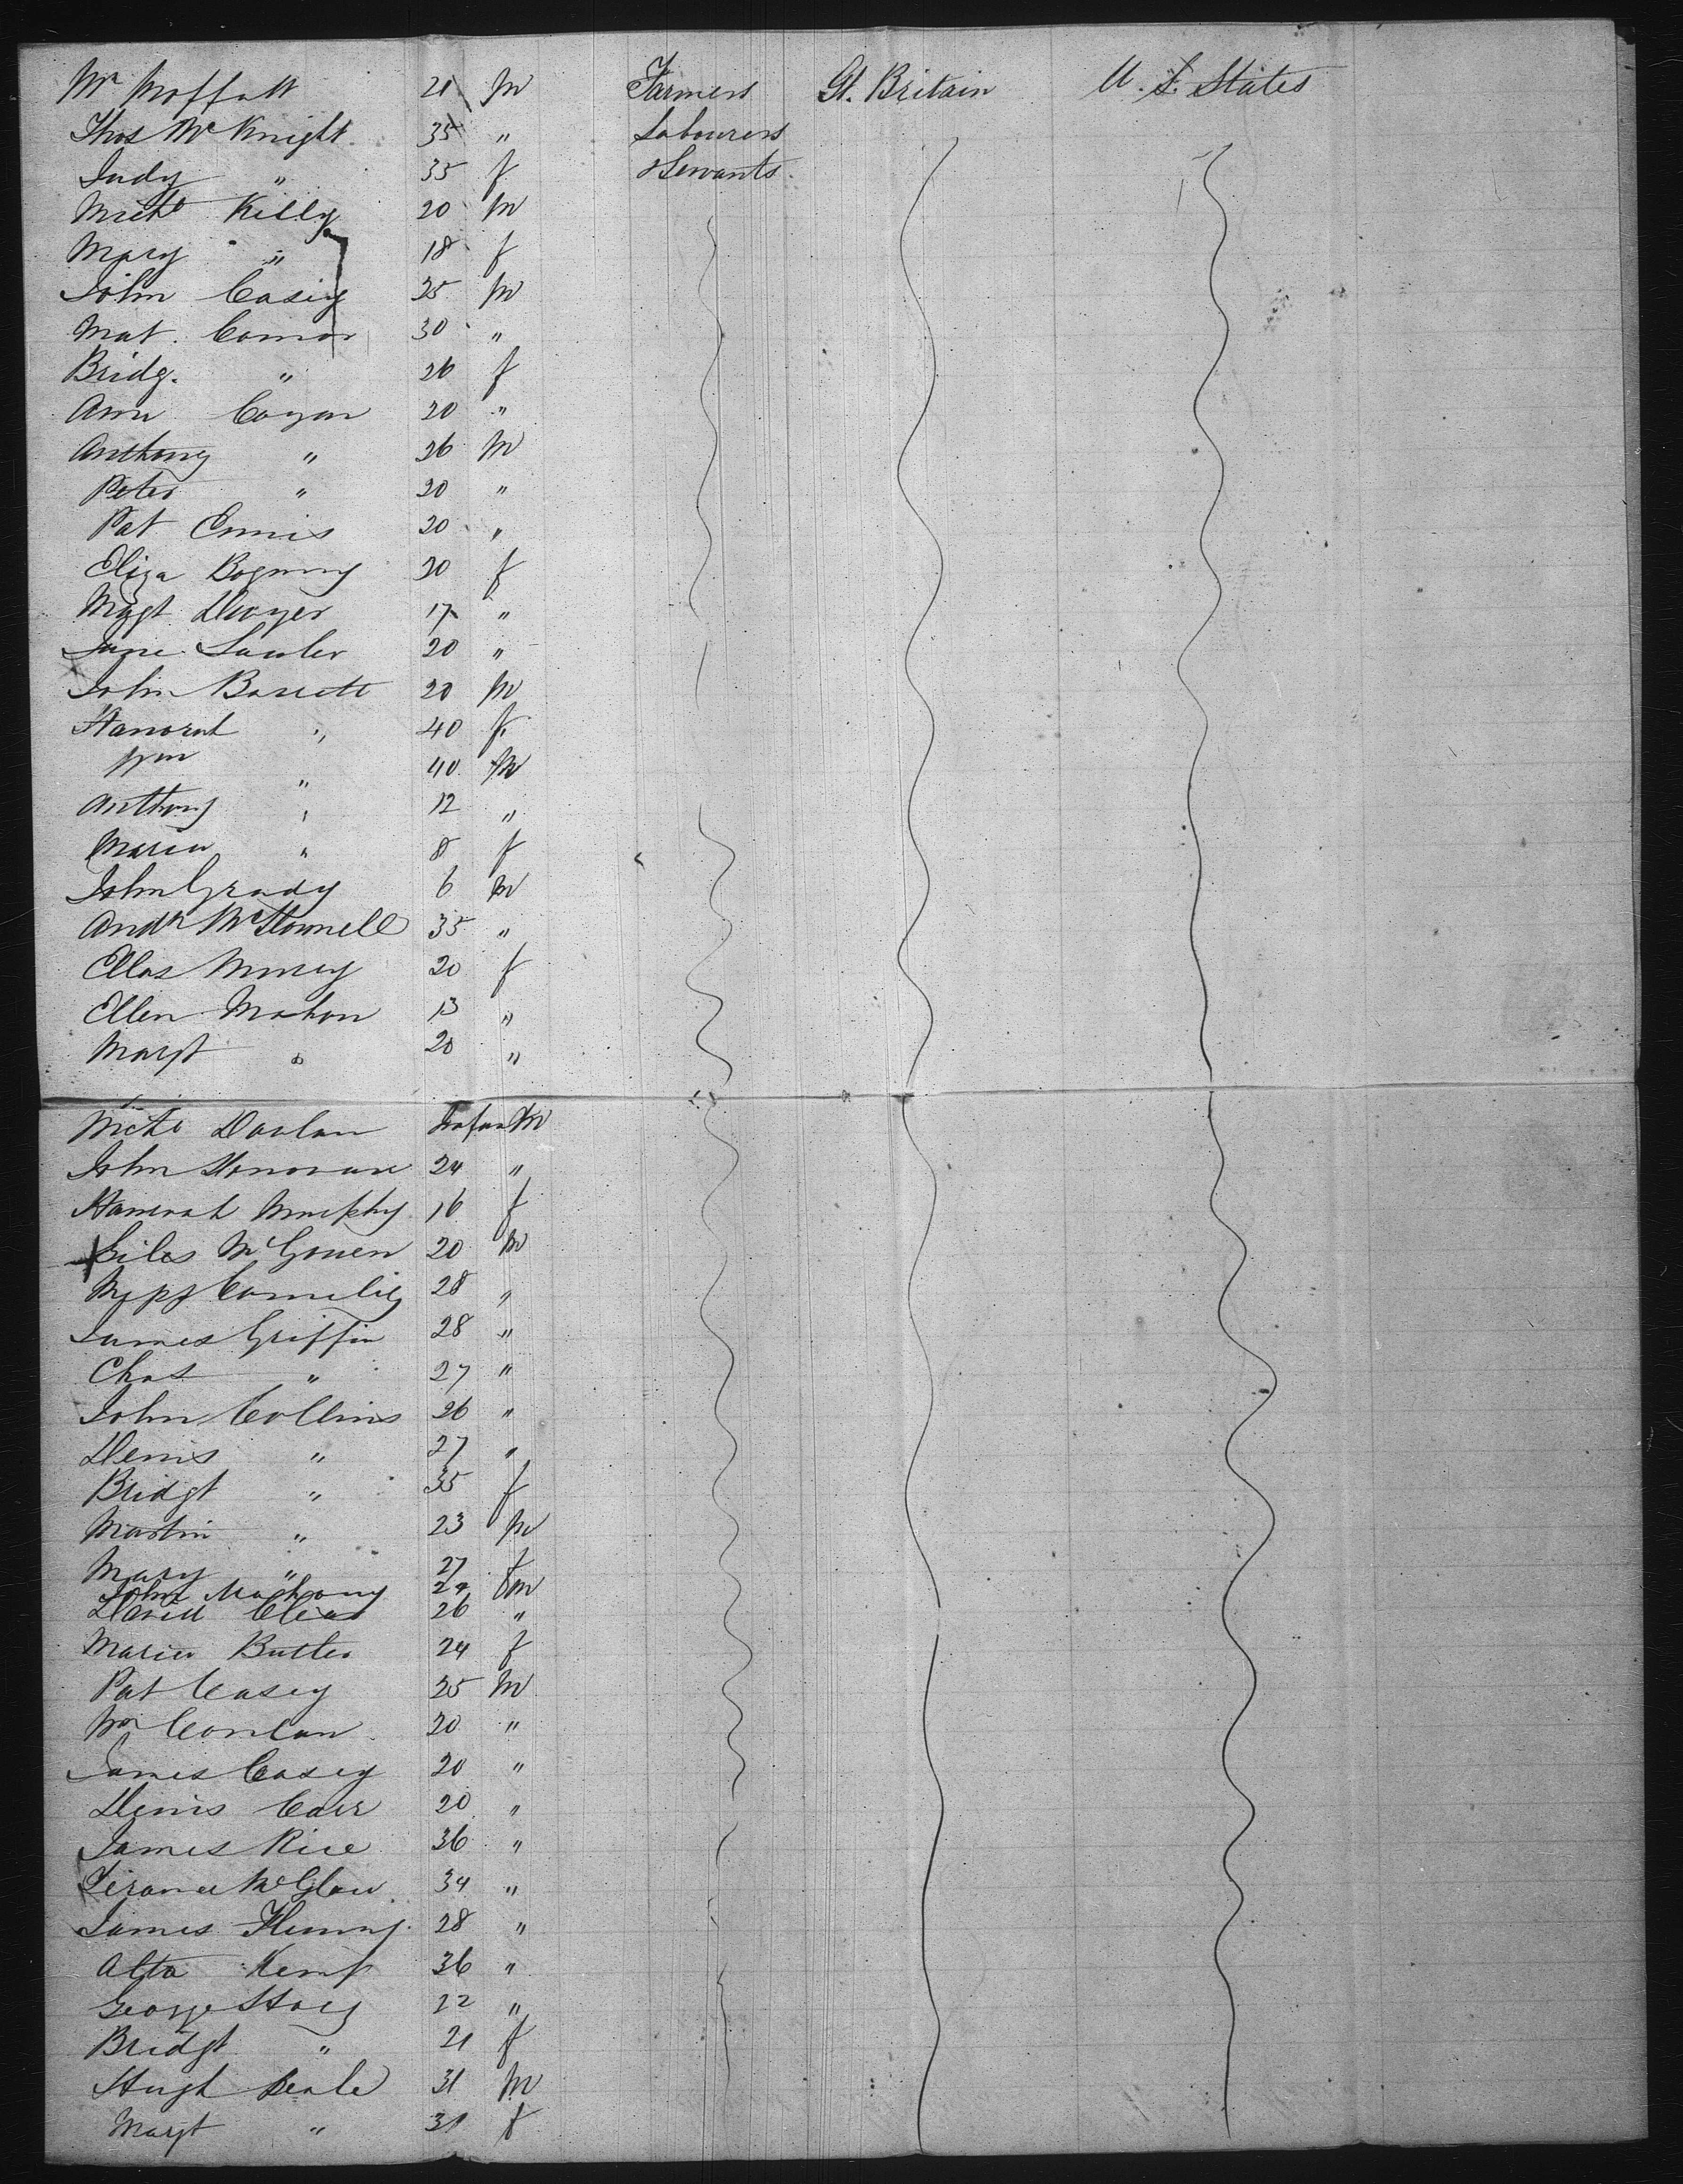 Wm Moffatt 21 M Farmers Gt. Britain U. S. States
Thos McKnight 35 " Labourers
Judy " 35 f & Servants.
Michl Kelly 20 M
Mary " 18 f
John Casey 25 M
Mat. Connor 30 "
Bridg. " 26 f
Ann Cogan 20 "
Anthony " 26 M
Peter " 20 "
Pat Ennis 20 "
Eliza 20 f
Magt Dwyer 17 "
Jane Lawler 20 "
John Barrett 20 M
Hanorah " 40 f
Wm " 40 M
Anthony " 12 "
Maria " 8 f
John Grady 6 M
Andw McDonnell 35 "
20 f
Ellen Mahon 13 "
Margt " 20 "
Michl Donlan Infant M
John Donovan 24 "
Hanorah Murphy 16 f
Giles McGowen 20 M
28 "
James Griffin 28 "
Chas " 27 "
John Collins 26 "
Denis " 27 "
Bridgt " 35 f
Martin " 23 M
Mary " 27 f
John Mahony 24 M
David 26 "
Maria Butler 24 f
Pat Casey 25 M
Wm Conlan 20 "
James Casey 20 "
Denis Carr 20 "
James Rice 36 "
34 "
James Fleming 28 "
Kemp 36 "
George 22 "
Bridgt " 21 f
Hugh 31 M
Margt " 31 f